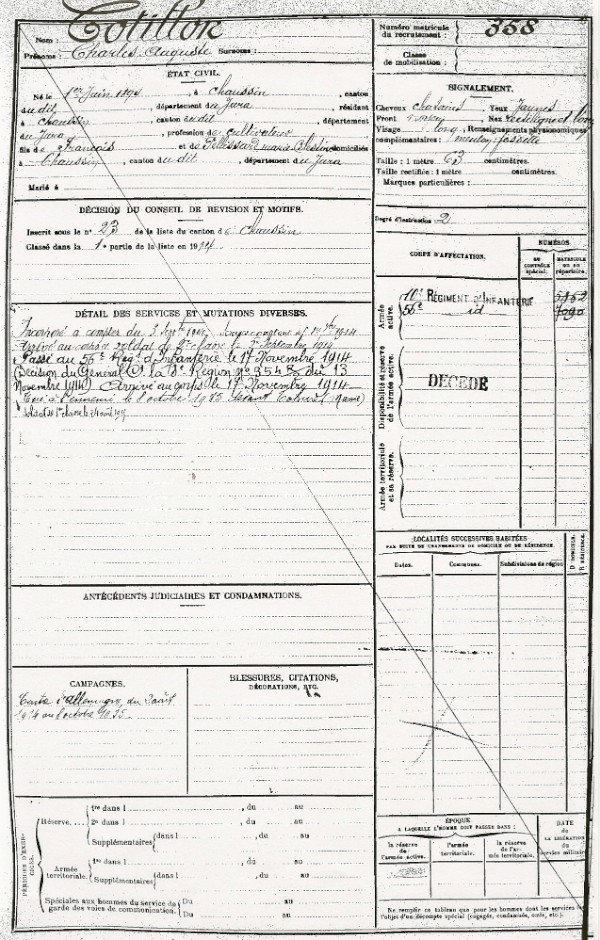 Nom : Cotillon
Prénoms : Charles Auguste Surnoms :
Numéro matricule
du recrutement :
358
Classe
de mobilisation :
ÉTAT CIVIL.
Né le 1er Juin 1894, à Chaussin, canton
dudit, département du Jura, résidant
à Chaussin, canton dudit, département
du Jura, profession de cultivateur
fils de François et de Pélissard Marie domiciliés
à Chaussin, canton dudit, département du Jura
Marié à
SIGNALEMENT.
Cheveux châtains Yeux jaunes
Front Nez rectiligne
Visage long, Renseignements physionomiques
complémentaires : menton fossette
Taille : 1 mètre 63 centimètres.
Taille rectifiée : 1 mètre centimètres.
Marques particulières :
Degré d'instruction 2
DÉCISION DU CONSEIL DE REVISION ET MOTIFS.
Inscrit sous le n° 23 de la liste du canton de Chaussin
Classé dans la 1e partie de la liste en 1914
CORPS D'AFFECTATION.
NUMÉROS
AU
CONTRÔLE
spécial.
MATRICULE
OU AU
répertoire.
Armée
active.
10e RÉGIMENT D'INFANTERIE
56e id
Disponibilité et réserve
de l'armée active.
DÉCÉDÉ
Armée territoriale
et sa réserve.
DÉTAIL DES SERVICES ET MUTATIONS DIVERSES.
Incorporé à compter du 3 Septbre 1914
Arrivé au corps, soldat de 2e classe le Septembre 1914
Passé au 56e Régt d'Infanterie le 17 Novembre 1914
(Décision du Général Ct la 8e Région N° 954 du 13
Novembre 1914) Arrivé au corps le 17 Novembre 1914
Tué à l'ennemi le 8 octobre 1915 (Marne)
soldat de 1re classe le
LOCALITÉS SUCCESSIVES HABITÉES
PAR SUITE DE CHANGEMENTS DE DOMICILE OU DE RÉSIDENCE.
Dates.
Communes.
Subdivisions de région
D DOMICILE.
R RÉSIDENCE.
ANTÉCÉDENTS JUDICIAIRES ET CONDAMNATIONS.
CAMPAGNES.
Contre l'Allemagne du 3 août
1914 au 8 octobre 1915
BLESSURES, CITATIONS,
DÉCORATIONS, ETC.
PÉRIODES D'EXERCICES.
Réserve....
1re dans l , du au
2e dans l , du au
Supplémentaires (dans l , du au
Armée
territoriale.
1re dans l , du au
Supplémentaires (dans l , du au
Spéciales aux hommes du service de
garde des voies de communication.
Du au
Du au
ÉPOQUE
A LAQUELLE L'HOMME DOIT PASSER DANS :
la réserve
de l'armée active.
l'armée
territoriale.
la réserve de l'armée territoriale.
DATE
de
LA LIBÉRATION
du service militaire
Ne remplir ce tableau que pour les hommes dont les services
l'objet d'un décompte spécial (engagés, condamnés, omis, etc.)